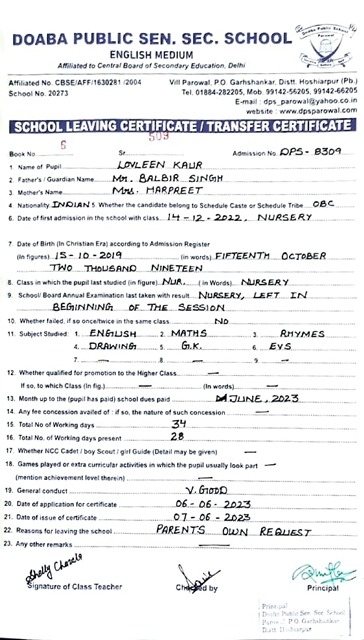 DOABA PUBLIC SEN. SEC. SCHOOL
ENGLISH MEDIUM
Affiliated to Central Board of Secondary Education, Delhi
Affiliated No. CBSE/AFF/1630281 /2004
School No. 20273
Vill Parowal, P.O. Garhshankar, Distt. Hoshiarpur (Pb.)
Tel. 01884-282205, Mob. 99142-56205, 99142-66205
E-mail : dps_parowal@yahoo.co.in
website : www.dpsparowal.com
SCHOOL LEAVING CERTIFICATE / TRANSFER CERTIFICATE
Book No. 6 Sr. 509 Admission No. DPS-8309
1 Name of Pupil LOVLEEN KAUR
2 Father's / Guardian Name MR. BALBIR SINGH
3 Mother's Name MRS. HARPREET
4 Nationality INDIAN 5 Whether the candidate belong to Schedule Caste or Schedule Tribe OBC
6 Date of first admission in the school with class 14-12-2022, NURSERY
7 Date of Birth (In Christian Era) according to Admission Register
(In figures) 15-10-2019 (in words) FIFTEENTH OCTOBER
TWO THOUSAND NINETEEN
8 Class in which the pupil last studied (in figure) NUR. ( in Words) NURSERY
9 School/ Board Annual Examination last taken with result NURSERY, LEFT IN
BEGINNING OF THE SESSION
10 Whether failed, if so once/twice in the same class NO
11 Subject Studied : 1. ENGLISH 2. MATHS 3. RHYMES
4. DRAWING 5. G.K. 6. EVS
7. — 8. — 9. —
12 Whether qualified for promotion to the Higher Class —
If so, to which Class (In fig.) — (In words) —
13 Month up to the (pupil has paid) school dues paid JUNE, 2023
14 Any fee concession availed of : if so, the nature of such concession —
15 Total No. of Working days 34
16 Total No. of Working days present 28
17 Whether NCC Cadet / boy Scout / girl Guide (Detail may be given) —
18 Games played or extra curricular activities in which the pupil usually look part —
(mention achievement level therein) —
19 General conduct V. GOOD
20 Date of application for certificate 06-06-2023
21 Date of issue of certificate 07-06-2023
22 Reasons for leaving the school PARENTS OWN REQUEST
23. Any other remarks —
Signature of Class Teacher Checked by Principal
Principal
Doaba Public Sen. Sec. School
Parowal P.O. Garhshankar
Distt Hoshiarpur